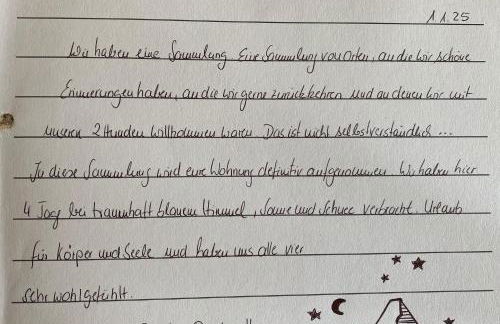 1.1.25
Wir haben eine Sammlung. Eine Sammlung von Orten, an die wir schöne
Erinnerungen haben, an die wir gerne zurückkehren und an denen wir mit
unseren 2 Hunden willkommen waren. Das ist nicht selbstverständlich ...
In diese Sammlung wird eure Wohnung definitiv aufgenommen. Wir haben hier
4 Tage bei traumhaft blauem Himmel, Sonne und Schnee verbracht. Urlaub
für Körper und Seele und haben uns alle vier
sehr wohlgefühlt.